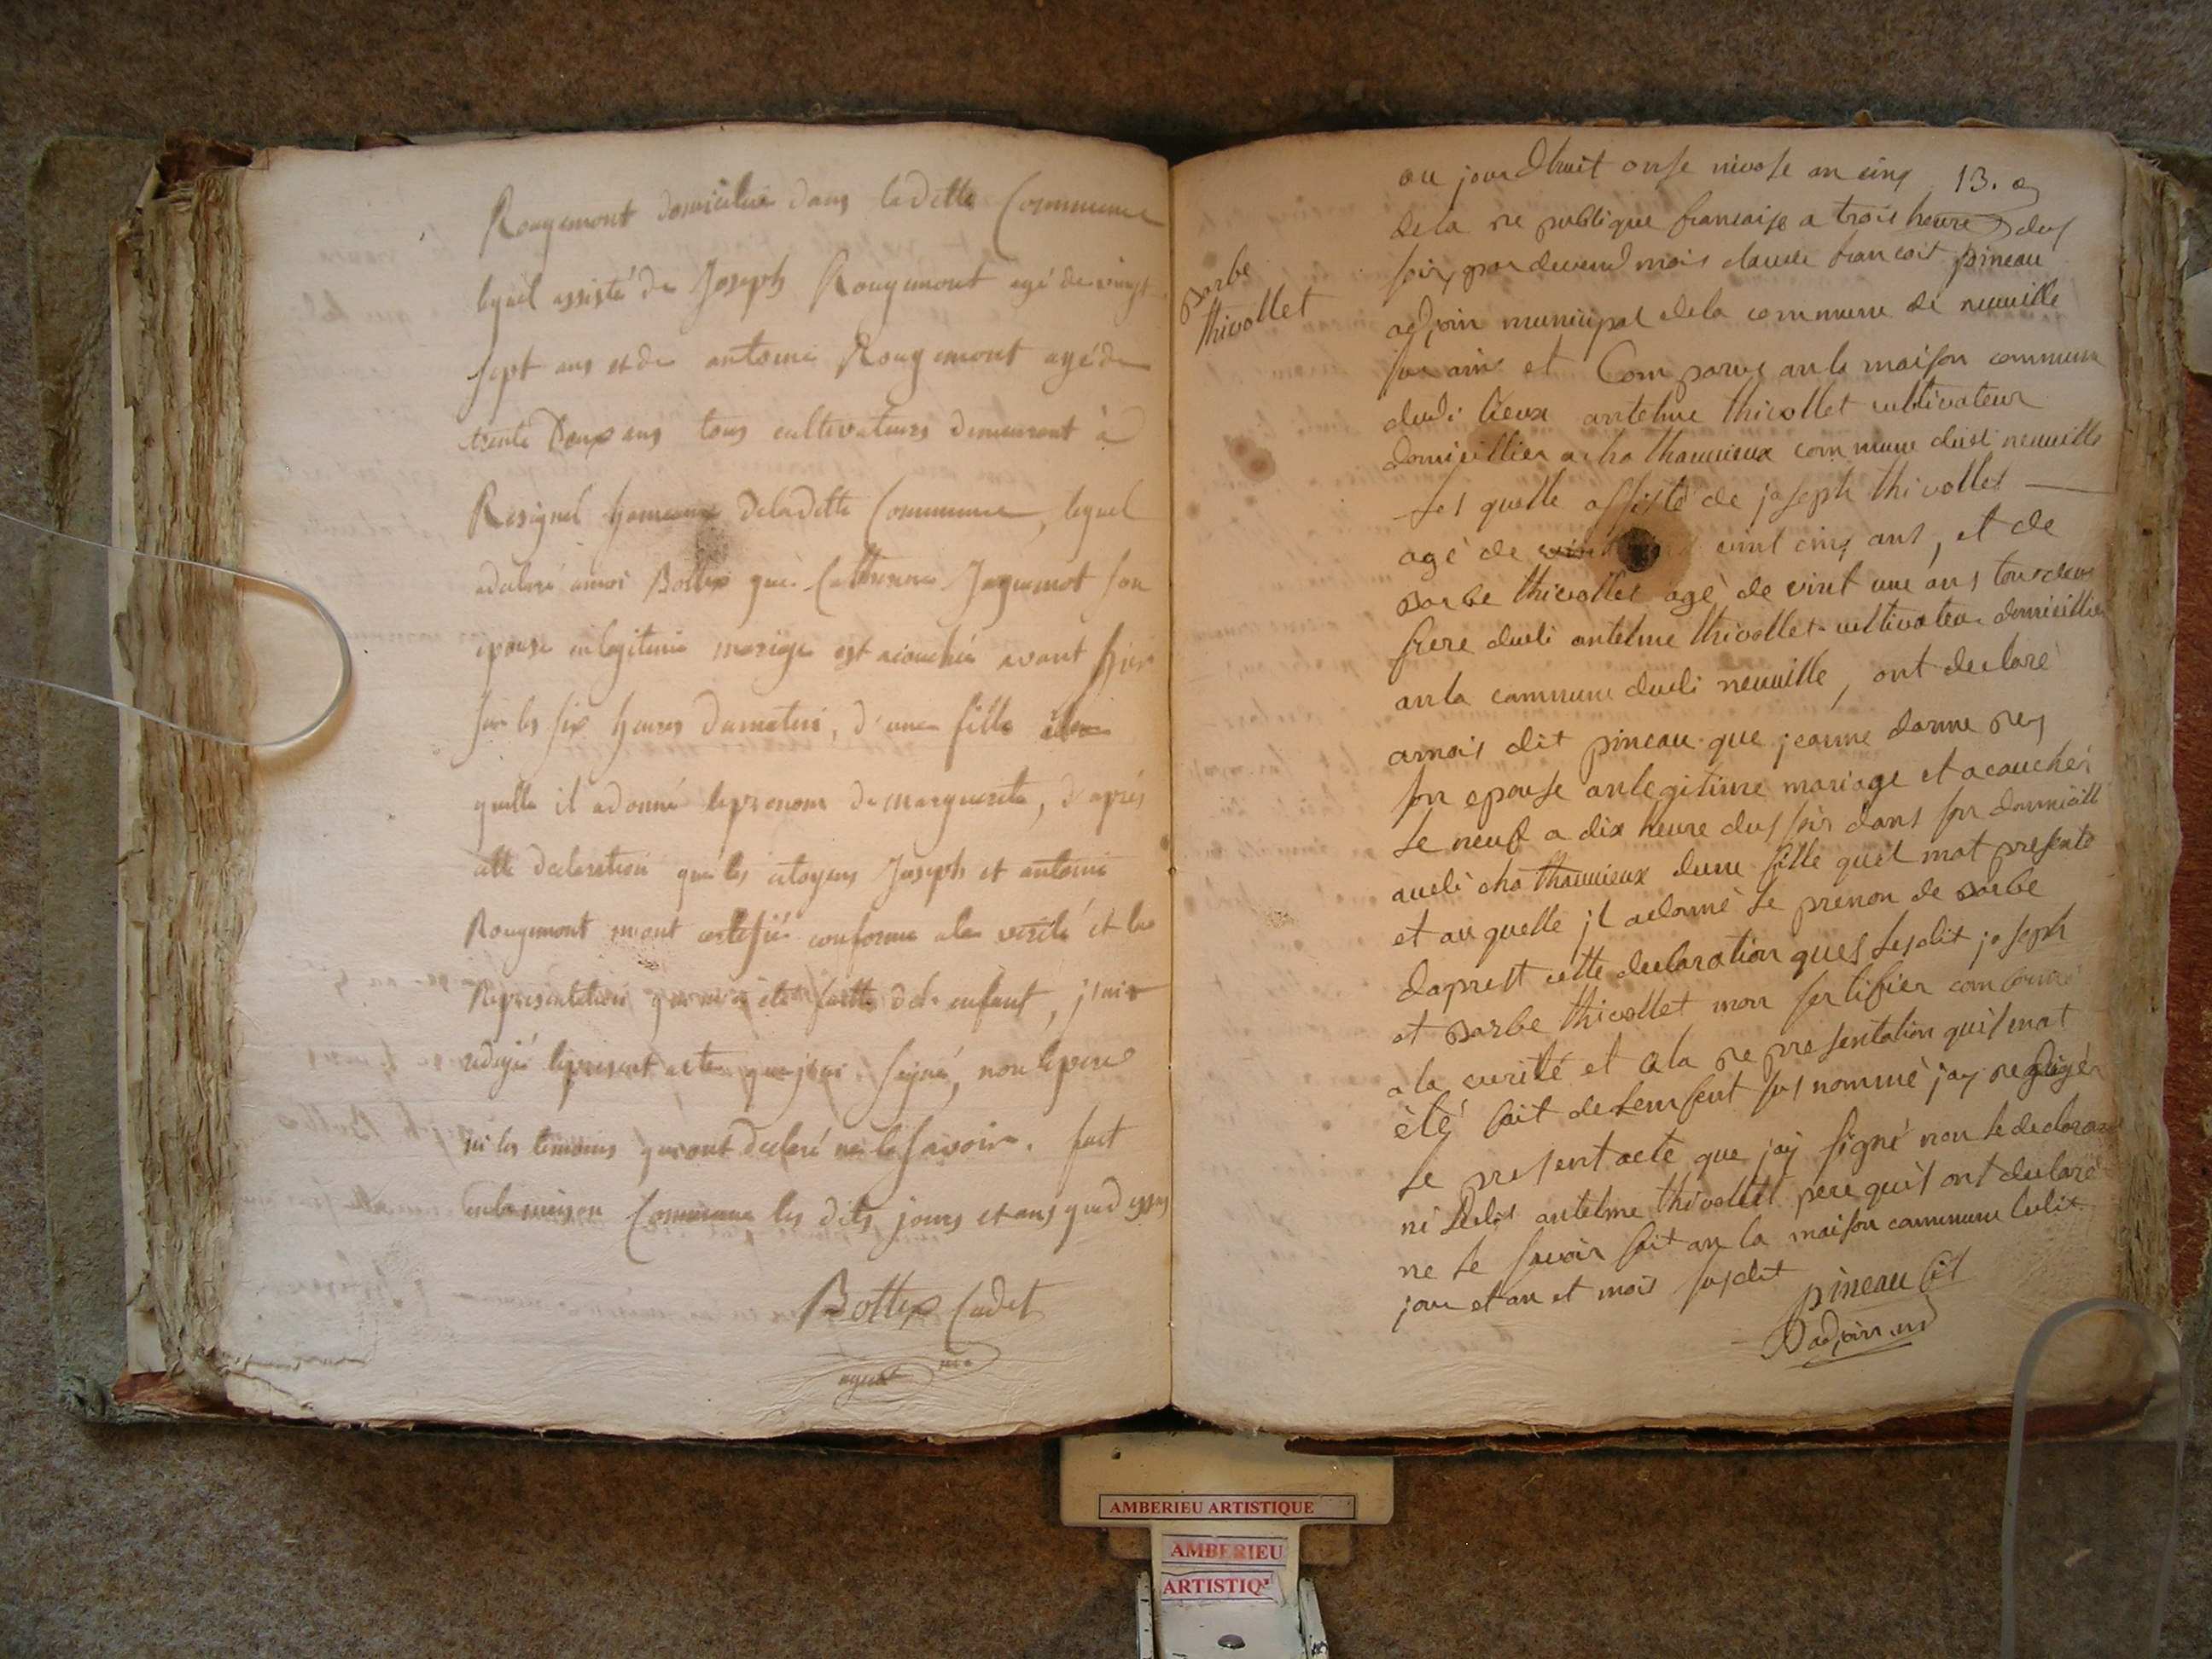 Rougemont domicilié dans laditte Commune
lequel assisté de Joseph Rougemont agé de vingt
sept ans et de antoine Rougemont agé de
trente Deux ans tous cultivateurs demeurant à
Resignel hameau deladitte Commune, lequel
adeclaré amoi Bottex que Catherine Jaguemot son
epouse en legitime mariage est acouchée avant hier
sur les six heures dumatin, d'une fille a la
quelle il adonné leprenom de marguerite, d'après
cette declaration que les citoyens Joseph et antoine
Rougemont m'ont certifié conforme a la verité et la
Representation qui m'a été faitte de l'enfant, j'ai
redigé lepresent acte que j'ai signé, non le pere
ni les temoins qui ont declaré ne le savoir. fait
enlamaison Commune les dits jours et ans que dessus
Bottex Cadet
agent
ou jourdhuit onse nivose an cinq 13.
dela re publique francaise a trois heure dus
soir, par devend mois claude francois pineau
adjoin municipal dela commune de neuville
sur ain et Comparus an la maison commune
dudi lieux antelme thivollet cultivateur
domicillier a chathanieux commune dudi neuville
les quelle assisté de joseph thivollet
agé de vint cinq ans, et de
Barbe thivollet agé de vint une ans tous deux
frere dudi antelme thivollet cultivateur domicillier
an la commune dudi neuville, ont declaré
amois dit pineau que jeanne danne rey
son epouse anlegitime mariage et acouchér
le neuf a dix heure dus soir dans son domicille
audi chathanieux dune fille quil mat presenté
et au quelle jl adonné le prenon de Barbe
daprest cette declaration ques lesdit joseph
et Barbe thivollet mon sertifier conforme
a la verité et a la representation quil mat
été fait de lenfent sus nommé jay redigér
le present acte que jay signé non le declarant
ni ledit antelme thivollet pere quil ont declaré
ne le savoir fait an la maison commune ledit
jour et an et mois susdit
pineau fil
adjoin
Barbe
thivollet
AMBERIEU ARTISTIQUE
AMBERIEU
ARTISTIQ